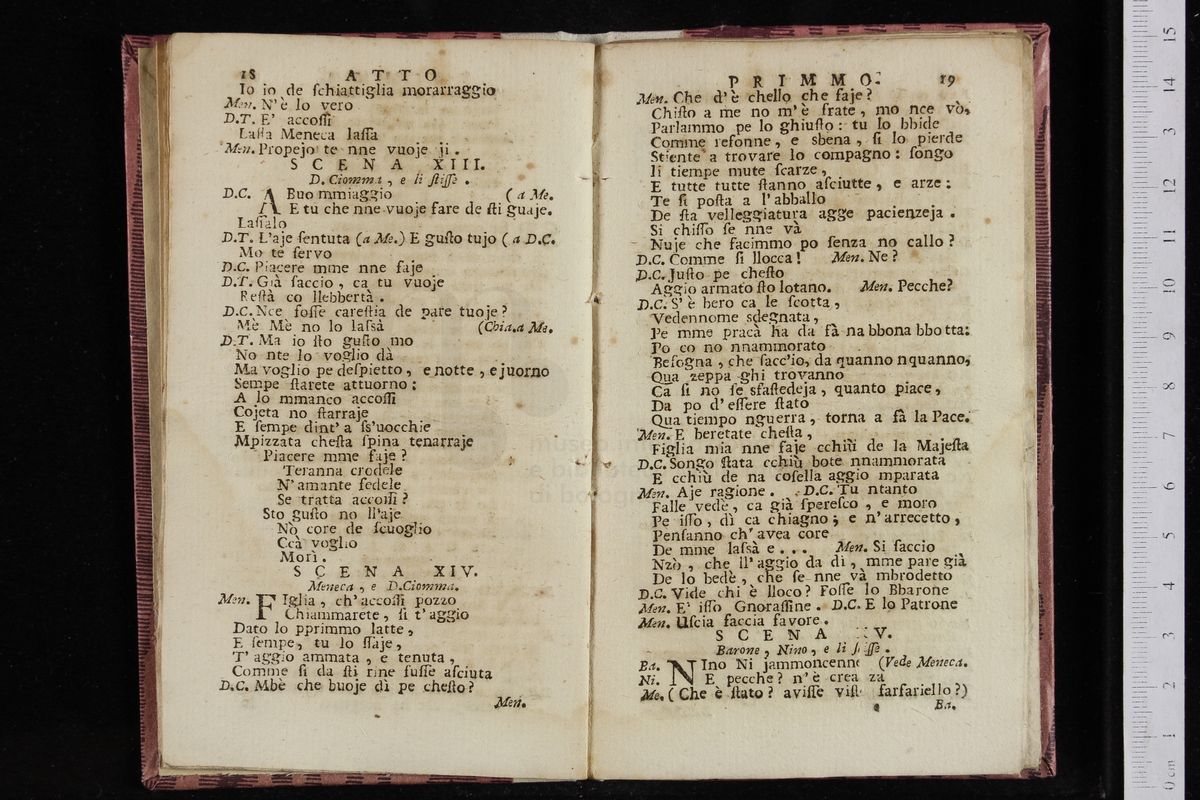 18 ATTO
Io io de ſchiattiglia morarraggio
Men. N'è lo vero
D.T. E' accoſſì
Laſſa Meneca laſſa
Men. Propejo te nne vuoje ji.
SCENA XIII.
D. Ciomma, e li ſteſſe.
D.C. ABuo mmiaggio (a Me.
E tu che nne vuoje fare de ſti guaje.
Laſſalo
D.T. L'aje ſentuta (a Me.) E guſto tujo (a D.C.
Mo te ſervo
D.C. Piacere mme nne faje
D.T. Già ſaccio, ca tu vuoje
Reſtà co llebbertà.
D.C. Nce foſſe careſtia de pare tuoje?
Mè Mè no lo laſsà (Chia.a Me.
D.T. Ma io ſto guſto mo
No nte lo voglio dà
Ma voglio pe deſpietto, e notte, e juorno
Sempe ſtarete attuorno:
A lo mmanco accoſſì
Cojeta no ſtarraje
E ſempe dint'a ſs'uocchie
Mpizzata cheſta ſpina tenarraje
Piacere mme faje?
Teranna crodele
N'amante fedele
Se tratta accoſſì?
Sto guſto no ll'aje
Nò core de ſcuoglio
Ccà voglio
Morì.
SCENA XIV.
Meneca, e D.Ciomma.
Men. FIglia, ch'accoſſì pozzo
Chiammarete, ſi t'aggio
Dato lo pprimmo latte,
E ſempe, tu lo ſſaje,
T'aggio ammata, e tenuta,
Comme ſi da ſti rine fuſſe aſciuta
D.C. Mbè che buoje dì pe cheſto?
Men.
PRIMMO. 19
Men. Che d'è chello che faje?
Chiſto a me no m'è frate, mo nce vò,
Parlammo pe lo ghiuſto: tu lo bbide
Comme reſonne, e sbena, ſi lo pierde
Stiente a trovare lo compagno: ſongo
li tiempe mute ſcarze,
E tutte tutte ſtanno aſciutte, e arze:
Te ſi poſta a l'abballo
De ſta velleggiatura agge pacienzeja.
Si chiſſo ſe nne và
Nuje che facimmo po ſenza no callo?
D.C. Comme ſi llocca! Men. Ne?
D.C. Juſto pe cheſto
Aggio armato ſto lotano. Men. Pecche?
D.C. S'è bero ca le ſcotta,
Vedennome sdegnata,
Pe mme pracà ha da fà na bbona bbotta:
Po co no nnammorato
Beſogna, che facc'io, da quanno nquanno,
Qua zeppa ghi trovanno
Ca ſi no ſe sfaſtedeja, quanto piace,
Da po d'eſſere ſtato
Qua tiempo nguerra, torna a fà la Pace.
Men. E beretate cheſta,
Figlia mia nne faje cchiù de la Majeſta
D.C. Songo ſtata cchiù bote nnammorata
E cchiù de na coſella aggio mparata
Men. Aje ragione. D.C. Tu ntanto
Falle vedè, ca già ſpereſco, e moro
Pe iſſo, dì ca chiagno; e n'arrecetto,
Penſanno ch'avea core
De mme laſsà e... Men. Si ſaccio
Nzò, che ll'aggio da dì, mme pare già
De lo bedè, che ſe nne và mbrodetto
D.C. Vide chi è lloco? Foſſe lo Bbarone
Men. E' iſſo Gnoraſſine. D.C. E lo Patrone
Men. Uſcia faccia favore.
SCENA XV.
Barone, Nino, e li ſteſſe.
Ba. NIno Ni jammoncenne (Vede Meneca.
Ni. E pecche? n'è crea za
Me. (Che è ſtato? aviſſe viſt farfariello?)
Ba.